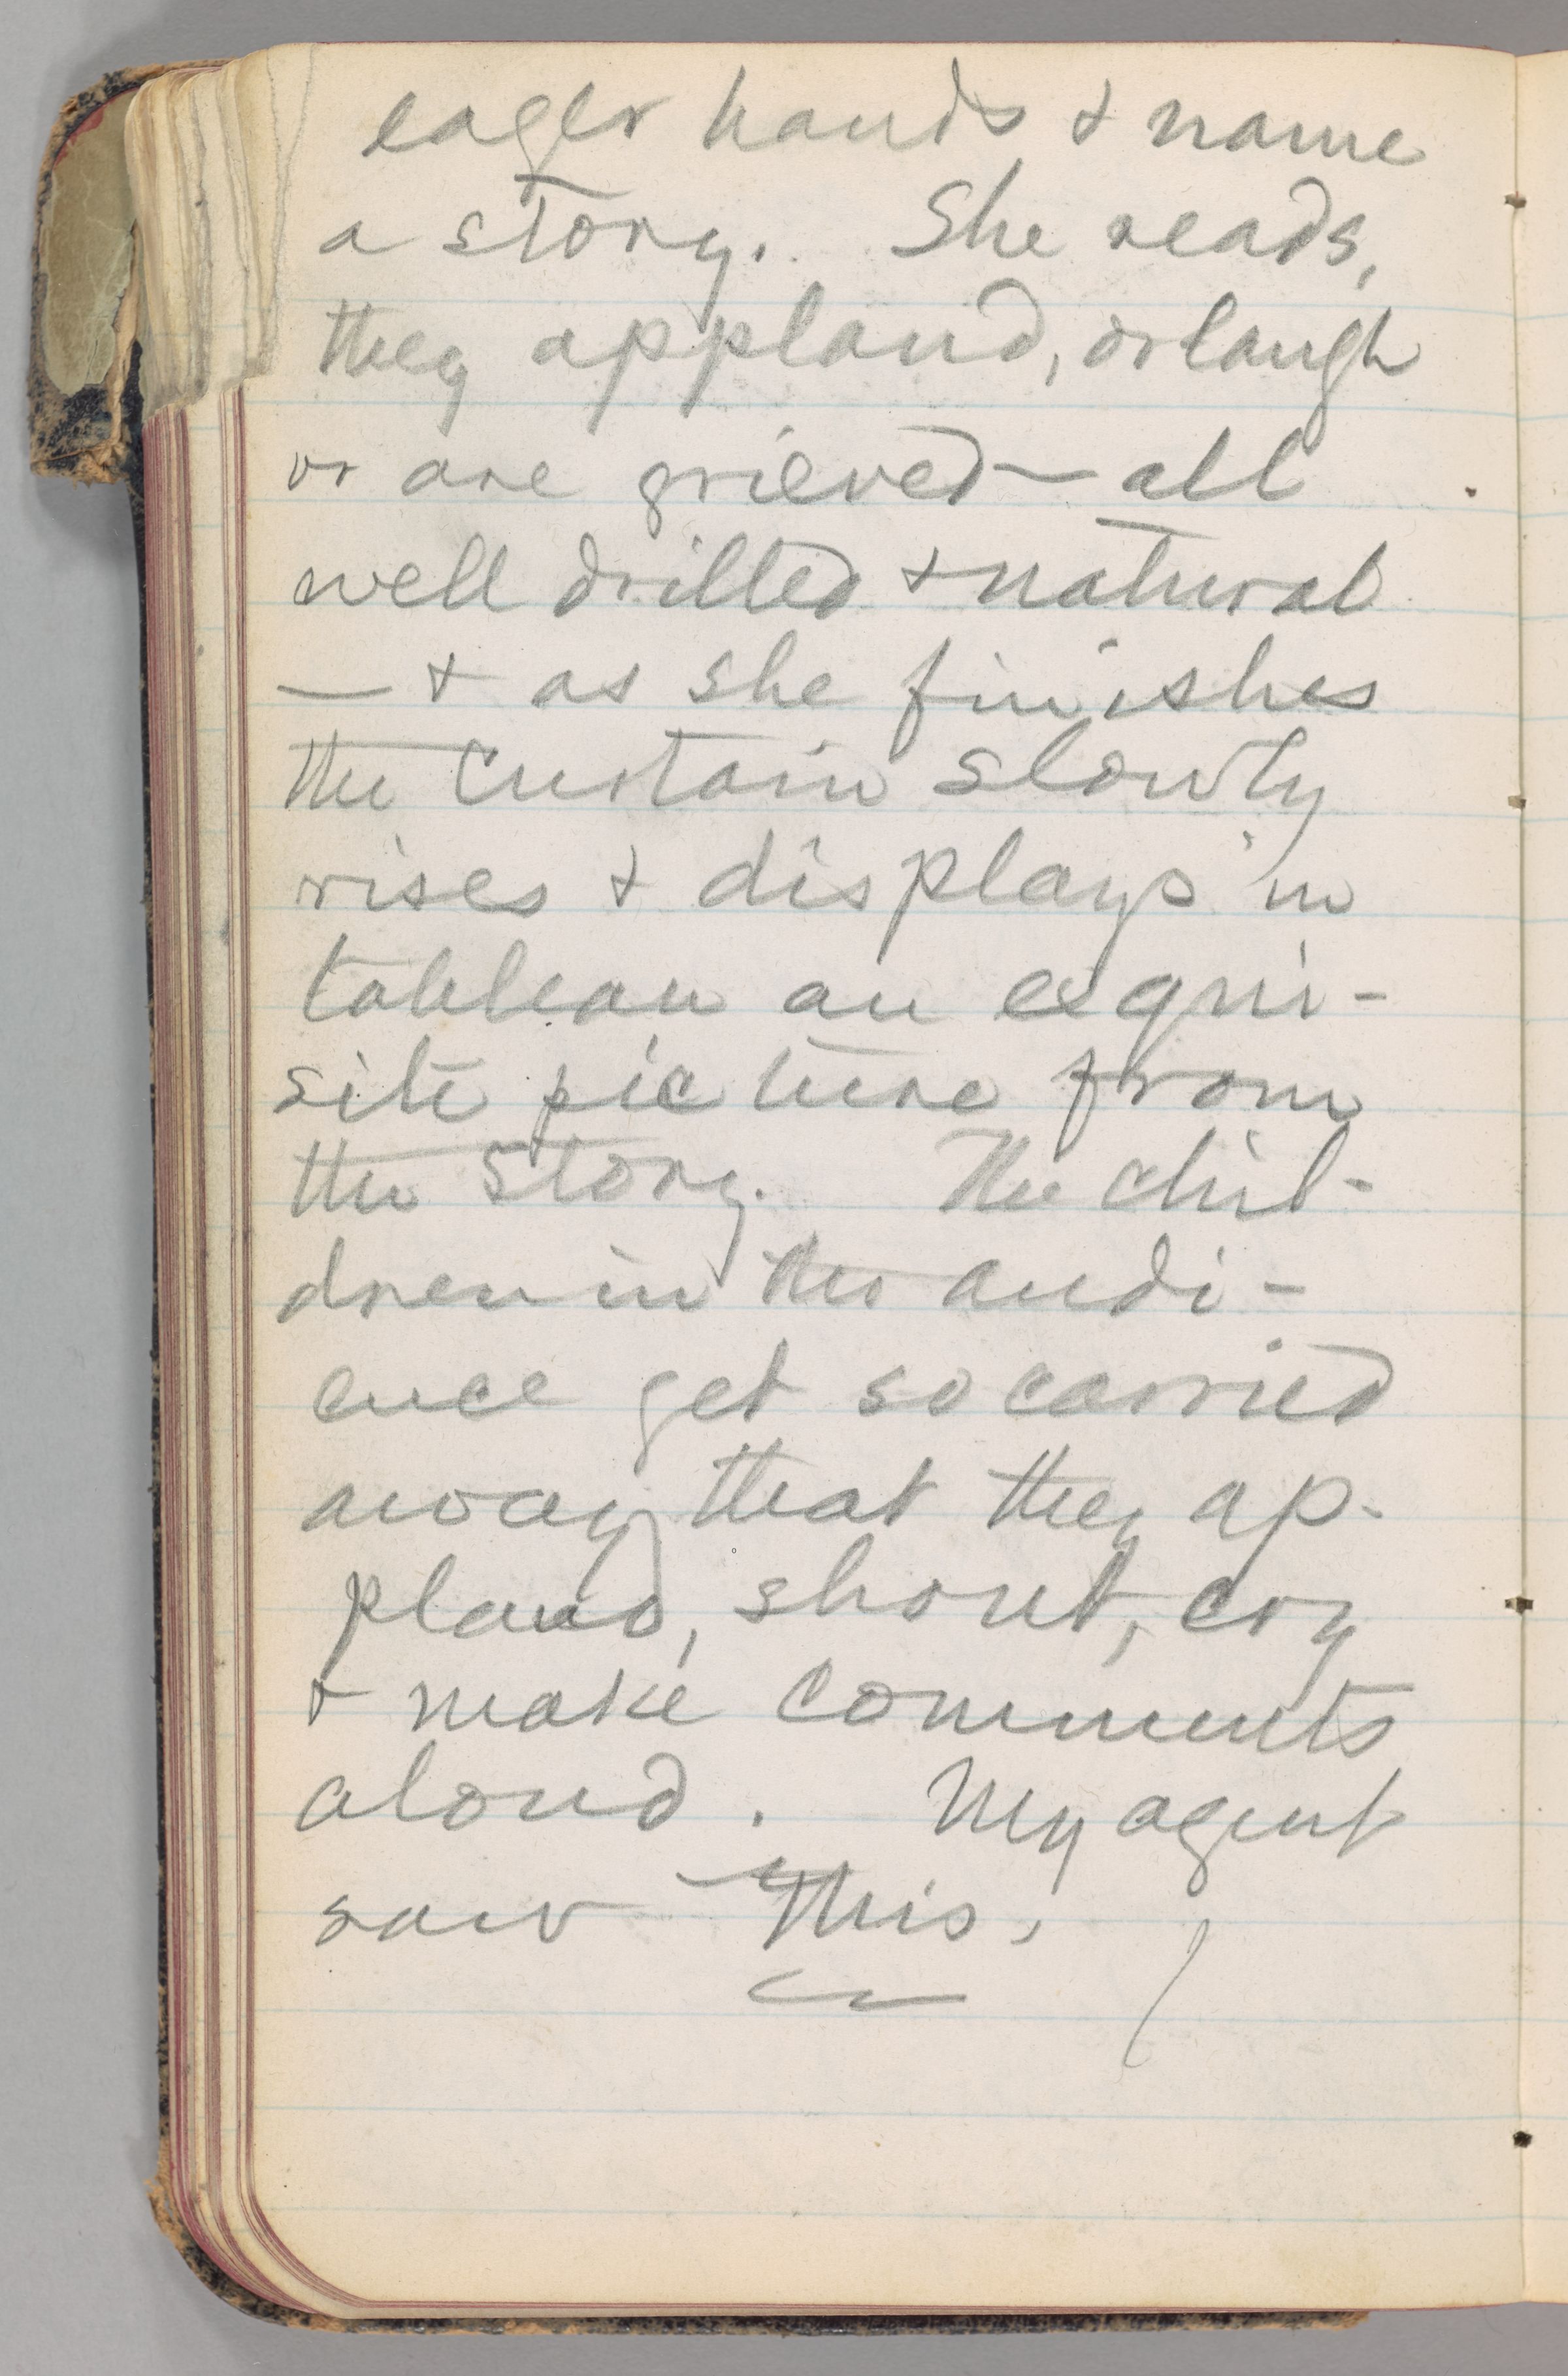 eager hands & name
a story. She reads,
they applaud, or laugh
or are grieved — all
well drilled & natural
— & as she finishes
the curtain slowly
rises & displays in
tableau an exqui-
site picture from
the story. The chil-
dren in the audi-
ence get so carried
away that they ap-
plaud, shout, cry
& make comments
aloud. My agent
saw this.